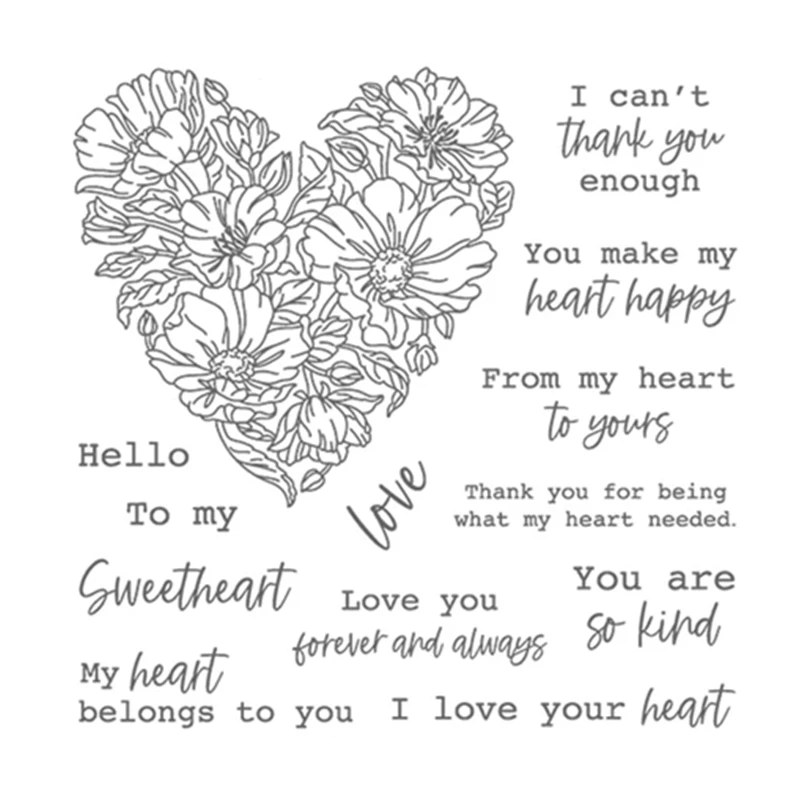 I can't
thank you
enough
You make my
heart happy
From my heart
to yours
Hello
To my
love
Thank you for being
what my heart needed.
Sweetheart
Love you
forever and always
You are
so kind
My heart
belongs to you
I love your heart